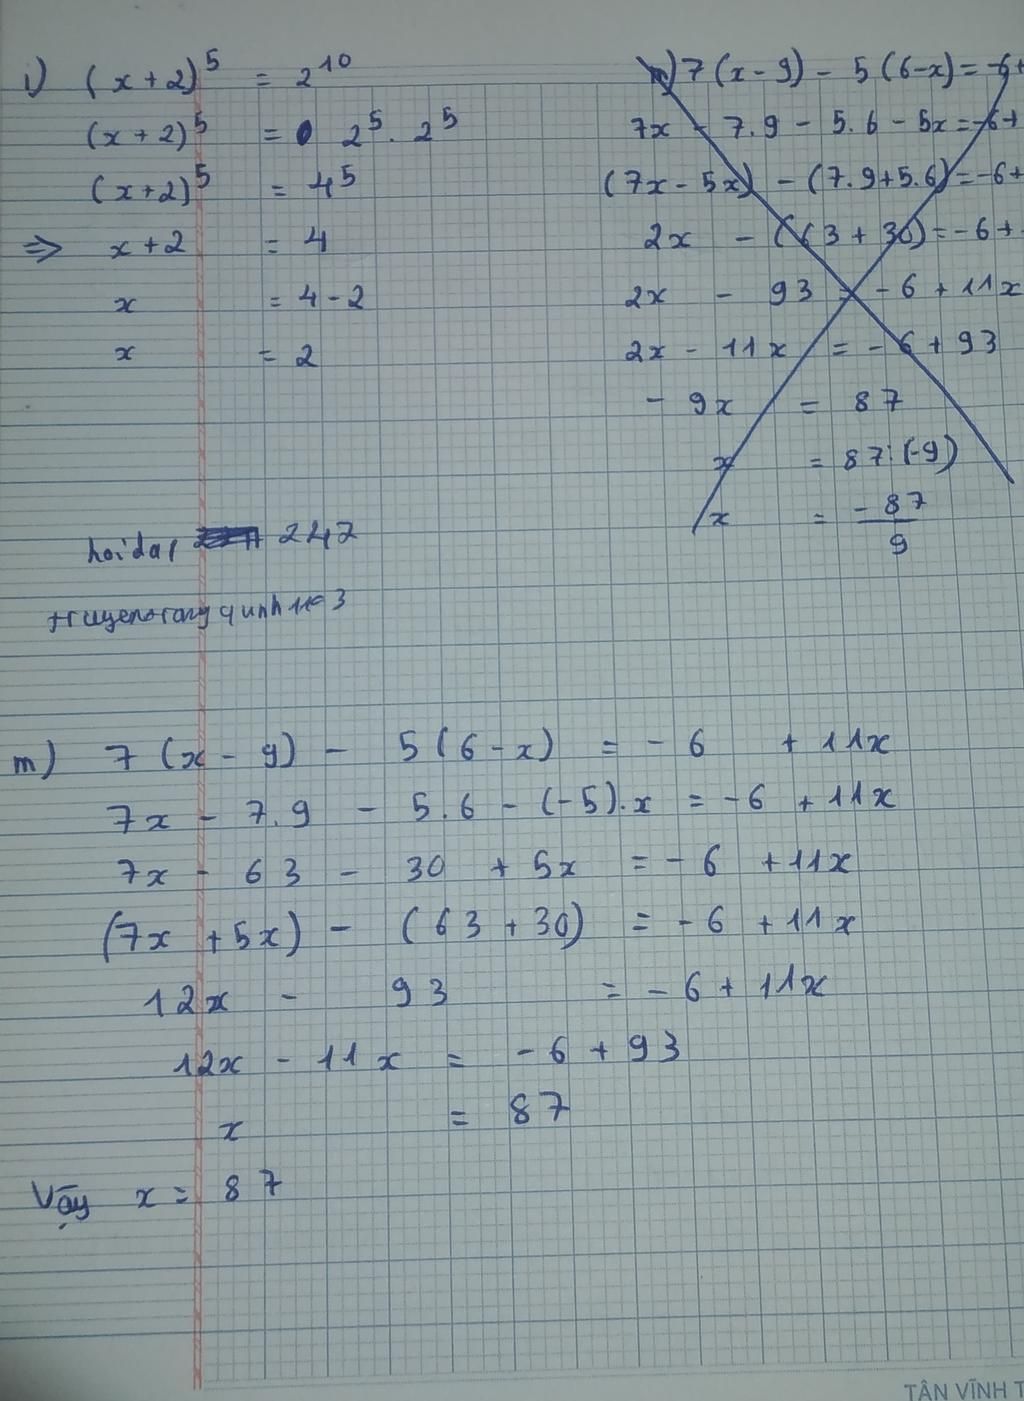 i) (x+2)^5 = 2^10
(x+2)^5 = 2^5 . 2^5
(x+2)^5 = 4^5
=> x+2 = 4
x = 4 - 2
x = 2
7(x-9) - 5(6-x) = -6+
7x - 7.9 - 5.6 - 5x = -6+
(7x - 5x) - (7.9+5.6) = -6+
2x - (63 + 30) = -6+
2x - 93 = -6 + 11x
2x - 11x = -6 + 93
- 9x = 87
x = 87:(-9)
x = -87/9
hoidap 247
m) 7(x-9) - 5(6-x) = -6 + 11x
7x - 7.9 - 5.6 - (-5).x = -6 + 11x
7x - 63 - 30 + 5x = -6 + 11x
(7x + 5x) - (63 + 30) = -6 + 11x
12x - 93 = -6 + 11x
12x - 11x = -6 + 93
x = 87
Vậy x = 87
TÂN VĨNH T